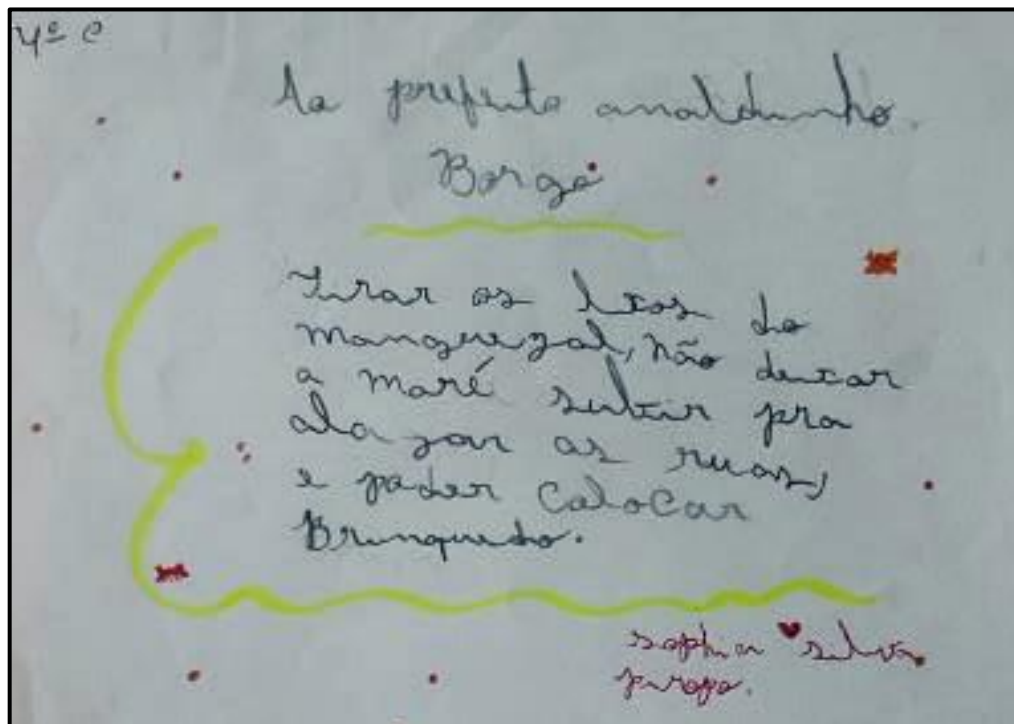 4º C
Ao prefeito arnaldinho.
Borgo
Tirar os lixos do
manguezal, não deixar
a maré subir pra
alagar as ruas,
e poder colocar
Brinquedo.
sophia silva